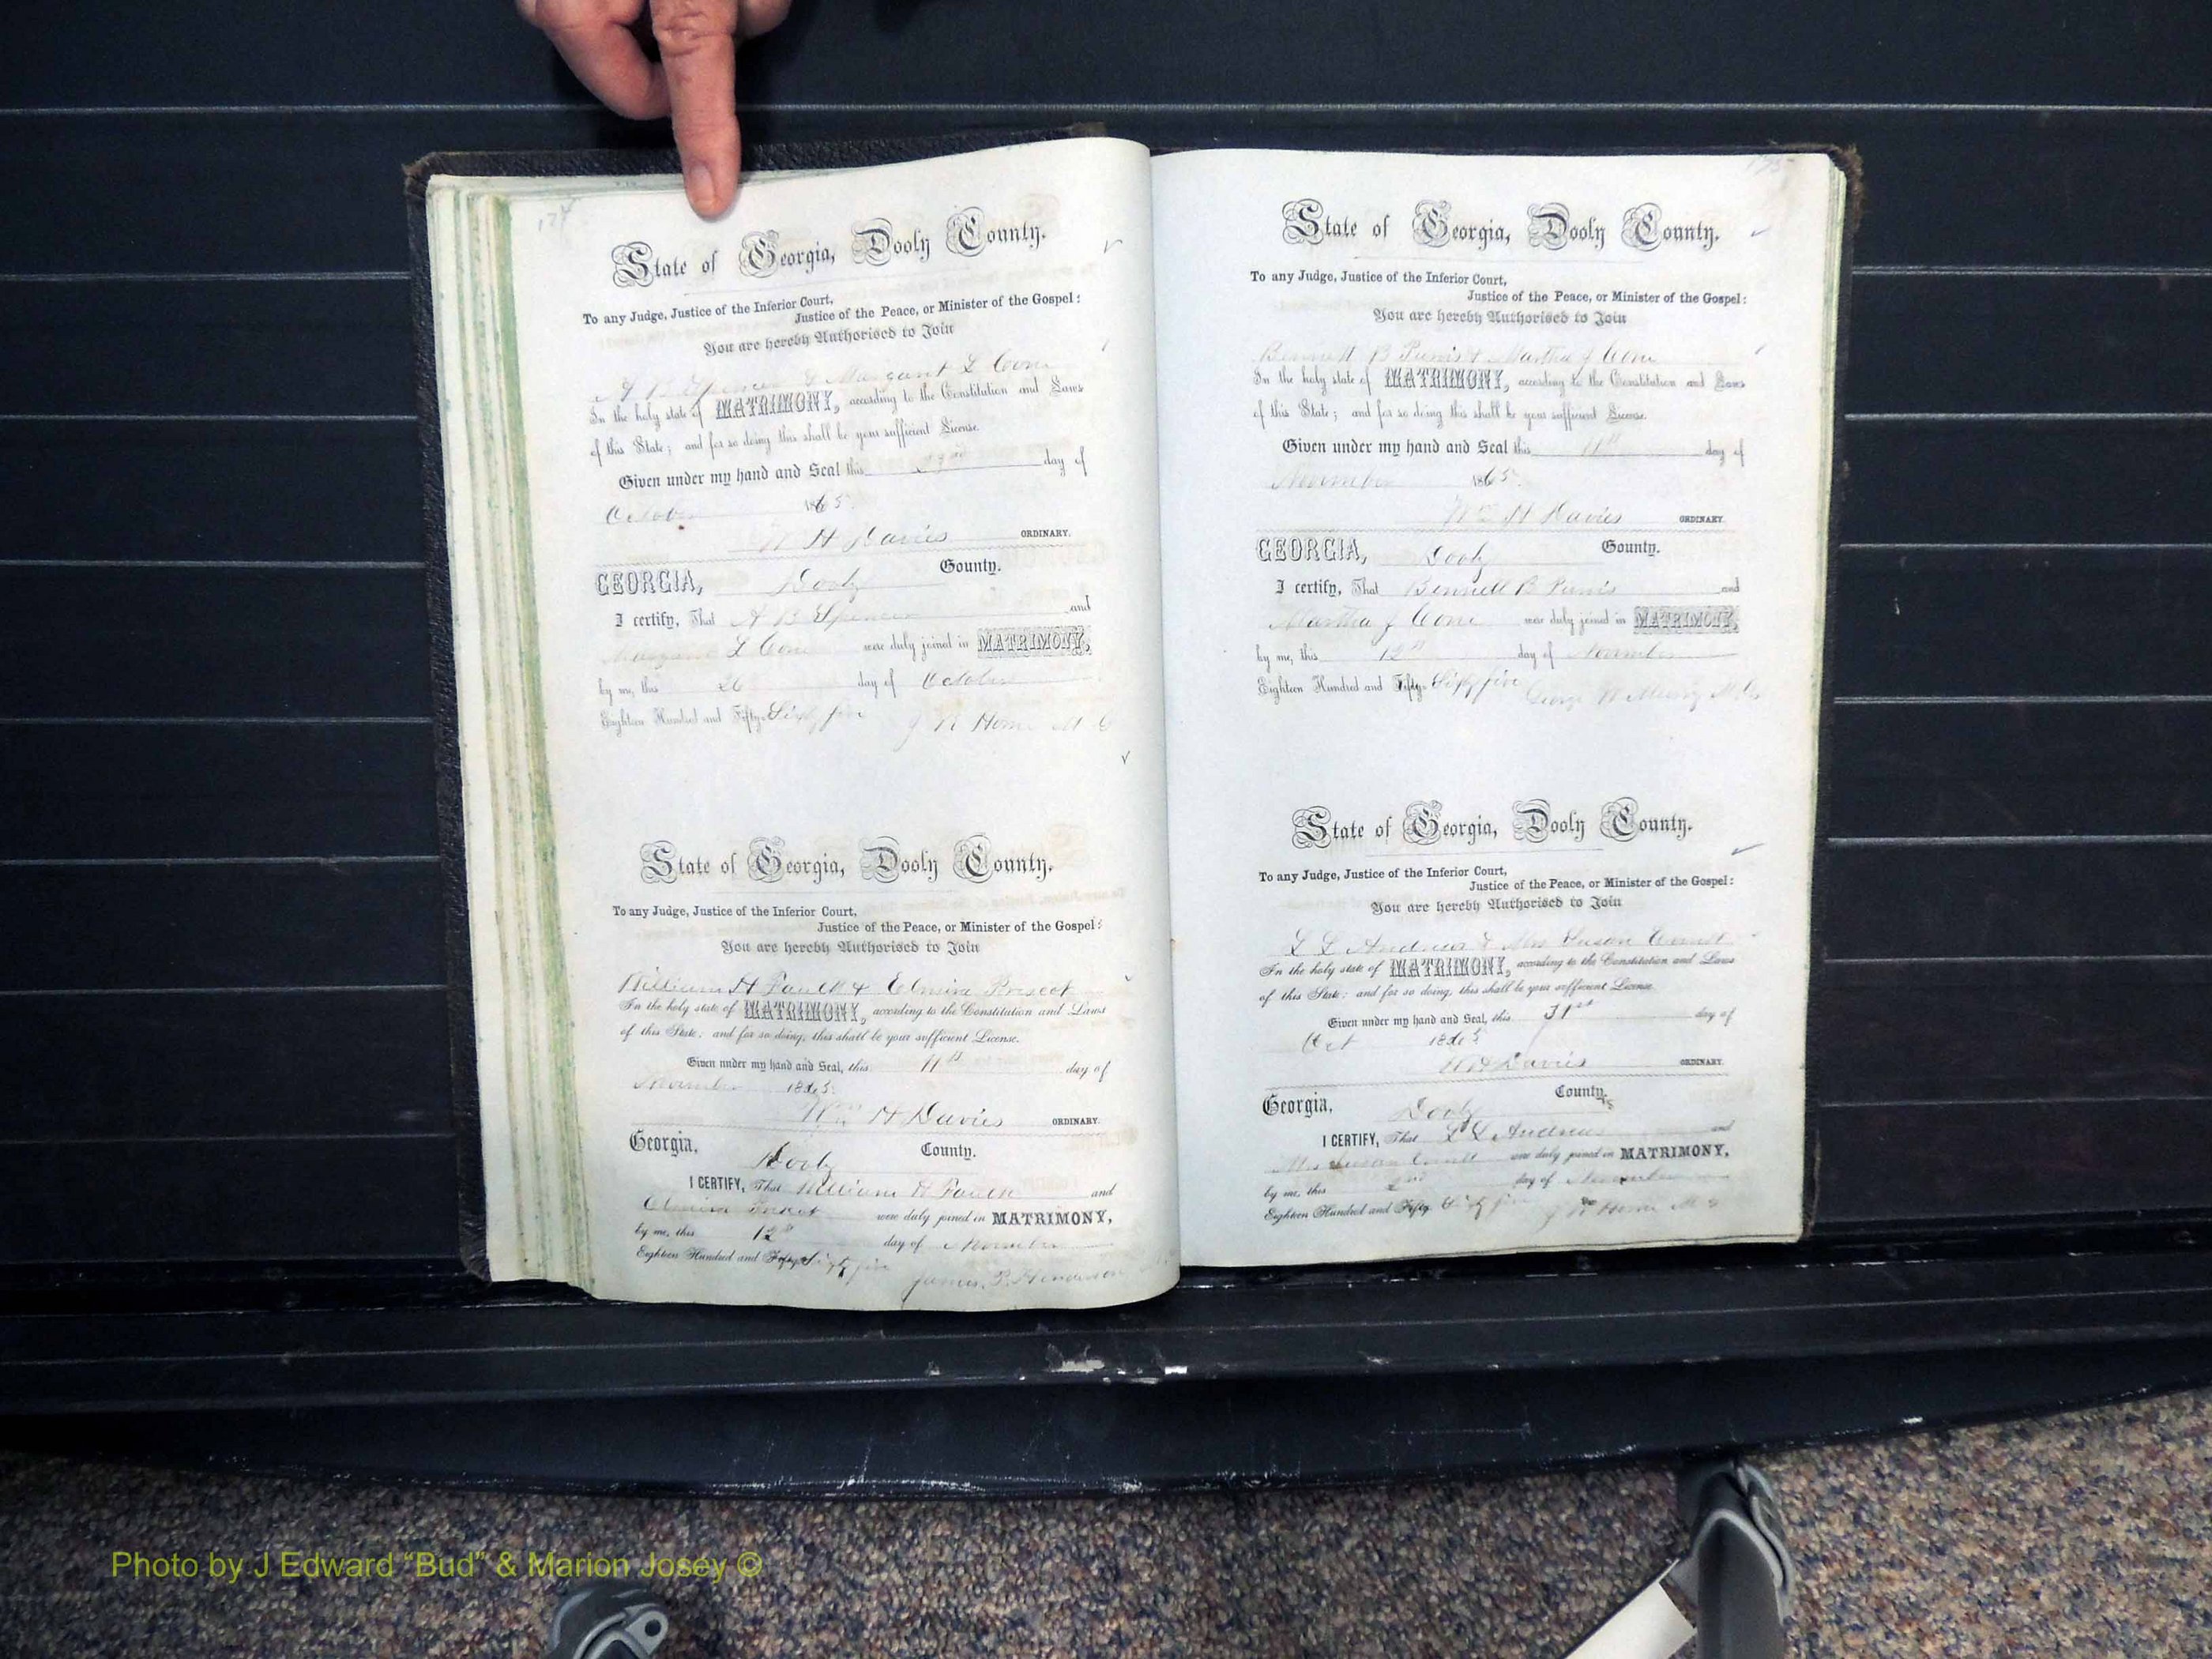 174
State of Georgia, Dooly County.
To any Judge, Justice of the Inferior Court,
Justice of the Peace, or Minister of the Gospel:
You are hereby Authorised to Join
A B Spencer & Margaret L Cone
In the holy state of MATRIMONY, according to the Constitution and Laws
of this State; and for so doing this shall be your sufficient License.
Given under my hand and Seal this day of
October 1865
W H Davies ORDINARY.
GEORGIA, Dooly County.
I certify, That A B Spencer and
Margaret L Cone were duly joined in MATRIMONY,
by me, this 26 day of October
Eighteen Hundred and Fifty Sixty five
J R Horn M G
State of Georgia, Dooly County.
To any Judge, Justice of the Inferior Court,
Justice of the Peace, or Minister of the Gospel:
You are hereby Authorised to Join
William H Faulk & Elmira Prescot
In the holy state of MATRIMONY, according to the Constitution and Laws
of this State; and for so doing, this shall be your sufficient License.
Given under my hand and Seal, this 11th day of
November 1865
Wm H Davies ORDINARY.
Georgia, Dooly County.
I CERTIFY, That William H Faulk and
Elmira were duly joined in MATRIMONY,
by me, this 12th day of November
Eighteen Hundred and Fifty Sixty five
James P. Henderson
175
State of Georgia, Dooly County.
To any Judge, Justice of the Inferior Court,
Justice of the Peace, or Minister of the Gospel:
You are hereby Authorised to Join
Bennett B & Martha J Cone
In the holy state of MATRIMONY, according to the Constitution and Laws
of this State; and for so doing this shall be your sufficient License.
Given under my hand and Seal this 11th day of
November 1865.
Wm H Davies ORDINARY.
GEORGIA, Dooly County.
I certify, That Bennett B and
Martha J Cone were duly joined in MATRIMONY,
by me, this 12th day of November
Eighteen Hundred and Fifty Sixty five George W M G
State of Georgia, Dooly County.
To any Judge, Justice of the Inferior Court,
Justice of the Peace, or Minister of the Gospel:
You are hereby Authorised to Join
L L Andrews & Mrs Susan
In the holy state of MATRIMONY, according to the Constitution and Laws
of this State; and for so doing, this shall be your sufficient License.
Given under my hand and Seal, this 31st day of
Oct 1865
W H Davies ORDINARY.
Georgia, Dooly County.
I CERTIFY, That L L Andrews and
Mrs Susan were duly joined in MATRIMONY,
by me, this 2nd day of November
Eighteen Hundred and Fifty Sixty five J R Horn M G
Photo by J Edward “Bud” & Marion Josey ©